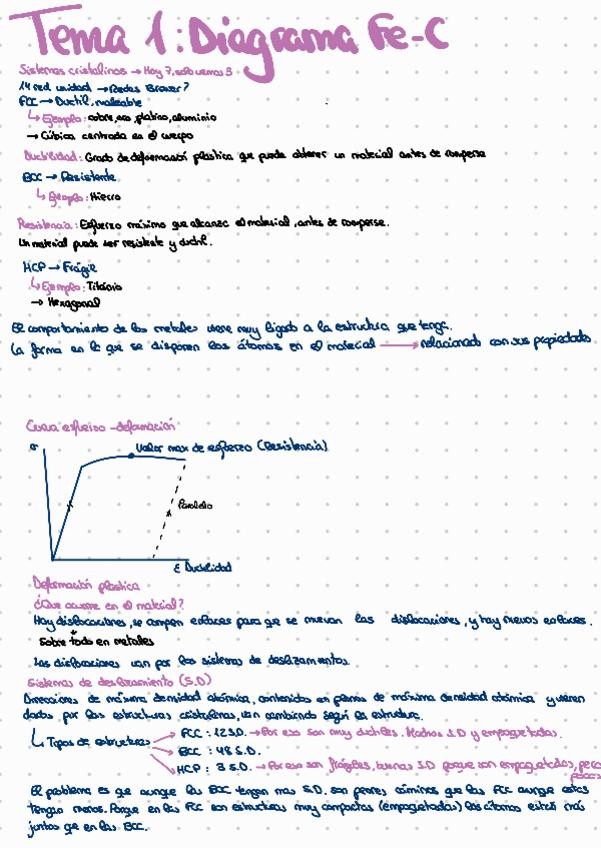 Tema 1: Diagrama Fe-C
Sistemas cristalinos → Hay 7, solo vemos 3
14 red unidad → Redes Braver?
FCC → Ductil, maleable
↳ Ejemplo: cobre, oro, platino, aluminio
→ Cúbica centrada en el cuerpo
Ductilidad: Grado de deformación plastica que puede obtener un material antes de romperse
BCC → Resistente
↳ Ejemplo: Hierro
Resistencia: Esfuerzo máximo que alcanza el material, antes de romperse.
Un material puede ser resistente y ductil.
HCP → Frágil
↳ Ejemplo: Titanio
→ Hexagonal
El comportamiento de los metales viene muy ligado a la estructura que tenga.
La forma en la que se disponen los átomos en el material → relacionado con sus propiedades
Curva esfuerzo-deformación
σ
Valor max de esfuerzo (Resistencia)
Paralelo
ε Ductilidad
Deformación plastica
¿Que ocurre en el material?
Hay dislocaciones, se rompen enlaces para qe se muevan las dislocaciones, y hay nuevos enlaces.
Sobre todo en metales
Las dislocaciones van por los sistemas de deslizamientos.
Sistemas de deslizamiento (S.D)
Direcciones de máxima densidad atómica, contenidos en planos de máxima densidad atómica y vienen
dados por las estructuras cristalinas, van cambiando según la estructura.
↳ Tipos de estructuras
FCC: 12 S.D. → Por eso son muy ductiles. Muchos S.D y empaquetadas.
BCC: 48 S.D.
HCP: 3 S.D. → Por eso son frágiles, buenas S.D porque son empaquetadas, pero
pocos
El problema es qe aunque las BCC tengan mas S.D. son peores caminos que las FCC aunque estas
tengan menos. Porque en las FCC son estructuras muy compactas (empaquetadas) los átomos están más
juntos qe en las BCC.